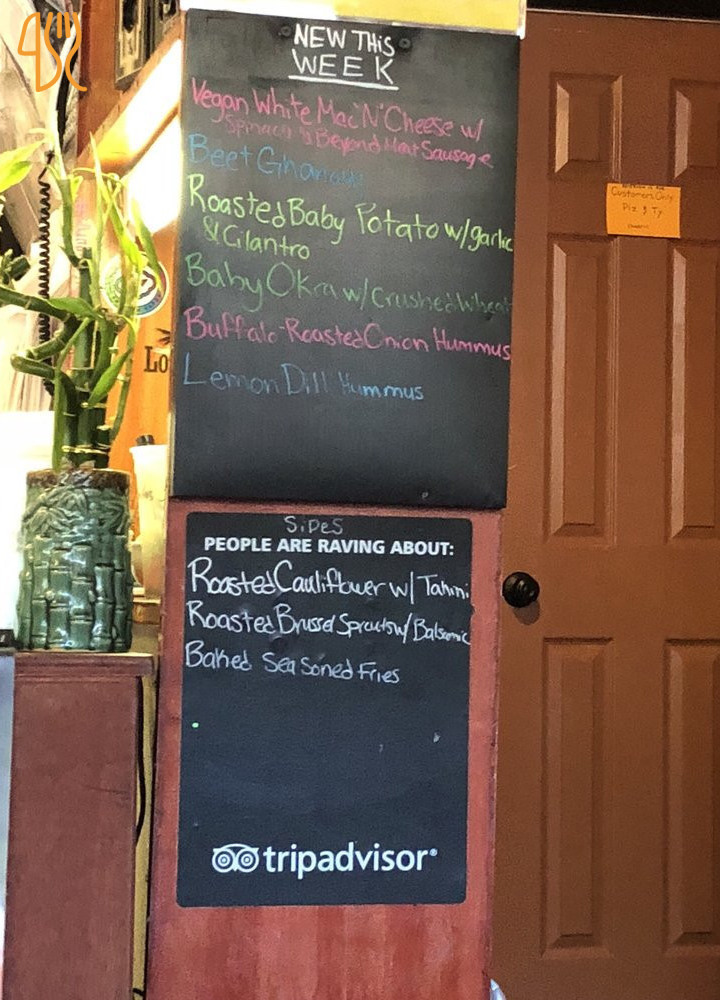 NEW THiS
WEEK
Vegan White Mac 'N' Cheese w/
Spinach & Beyond Meat Sausage
Beet Ghanoush
Roasted Baby Potato w/ garlic
& Cilantro
Baby Okra w/ Crushed Wheat
Buffalo-Roasted Onion Hummus
Lemon Dill Hummus
Customers Only
Plz & Ty
Lo
SiDeS
PEOPLE ARE RAVING ABOUT:
Roasted Cauliflower w/ Tahini
Roasted Brussel Sprouts w/ Balsamic
Baked Seasoned Fries
tripadvisor®